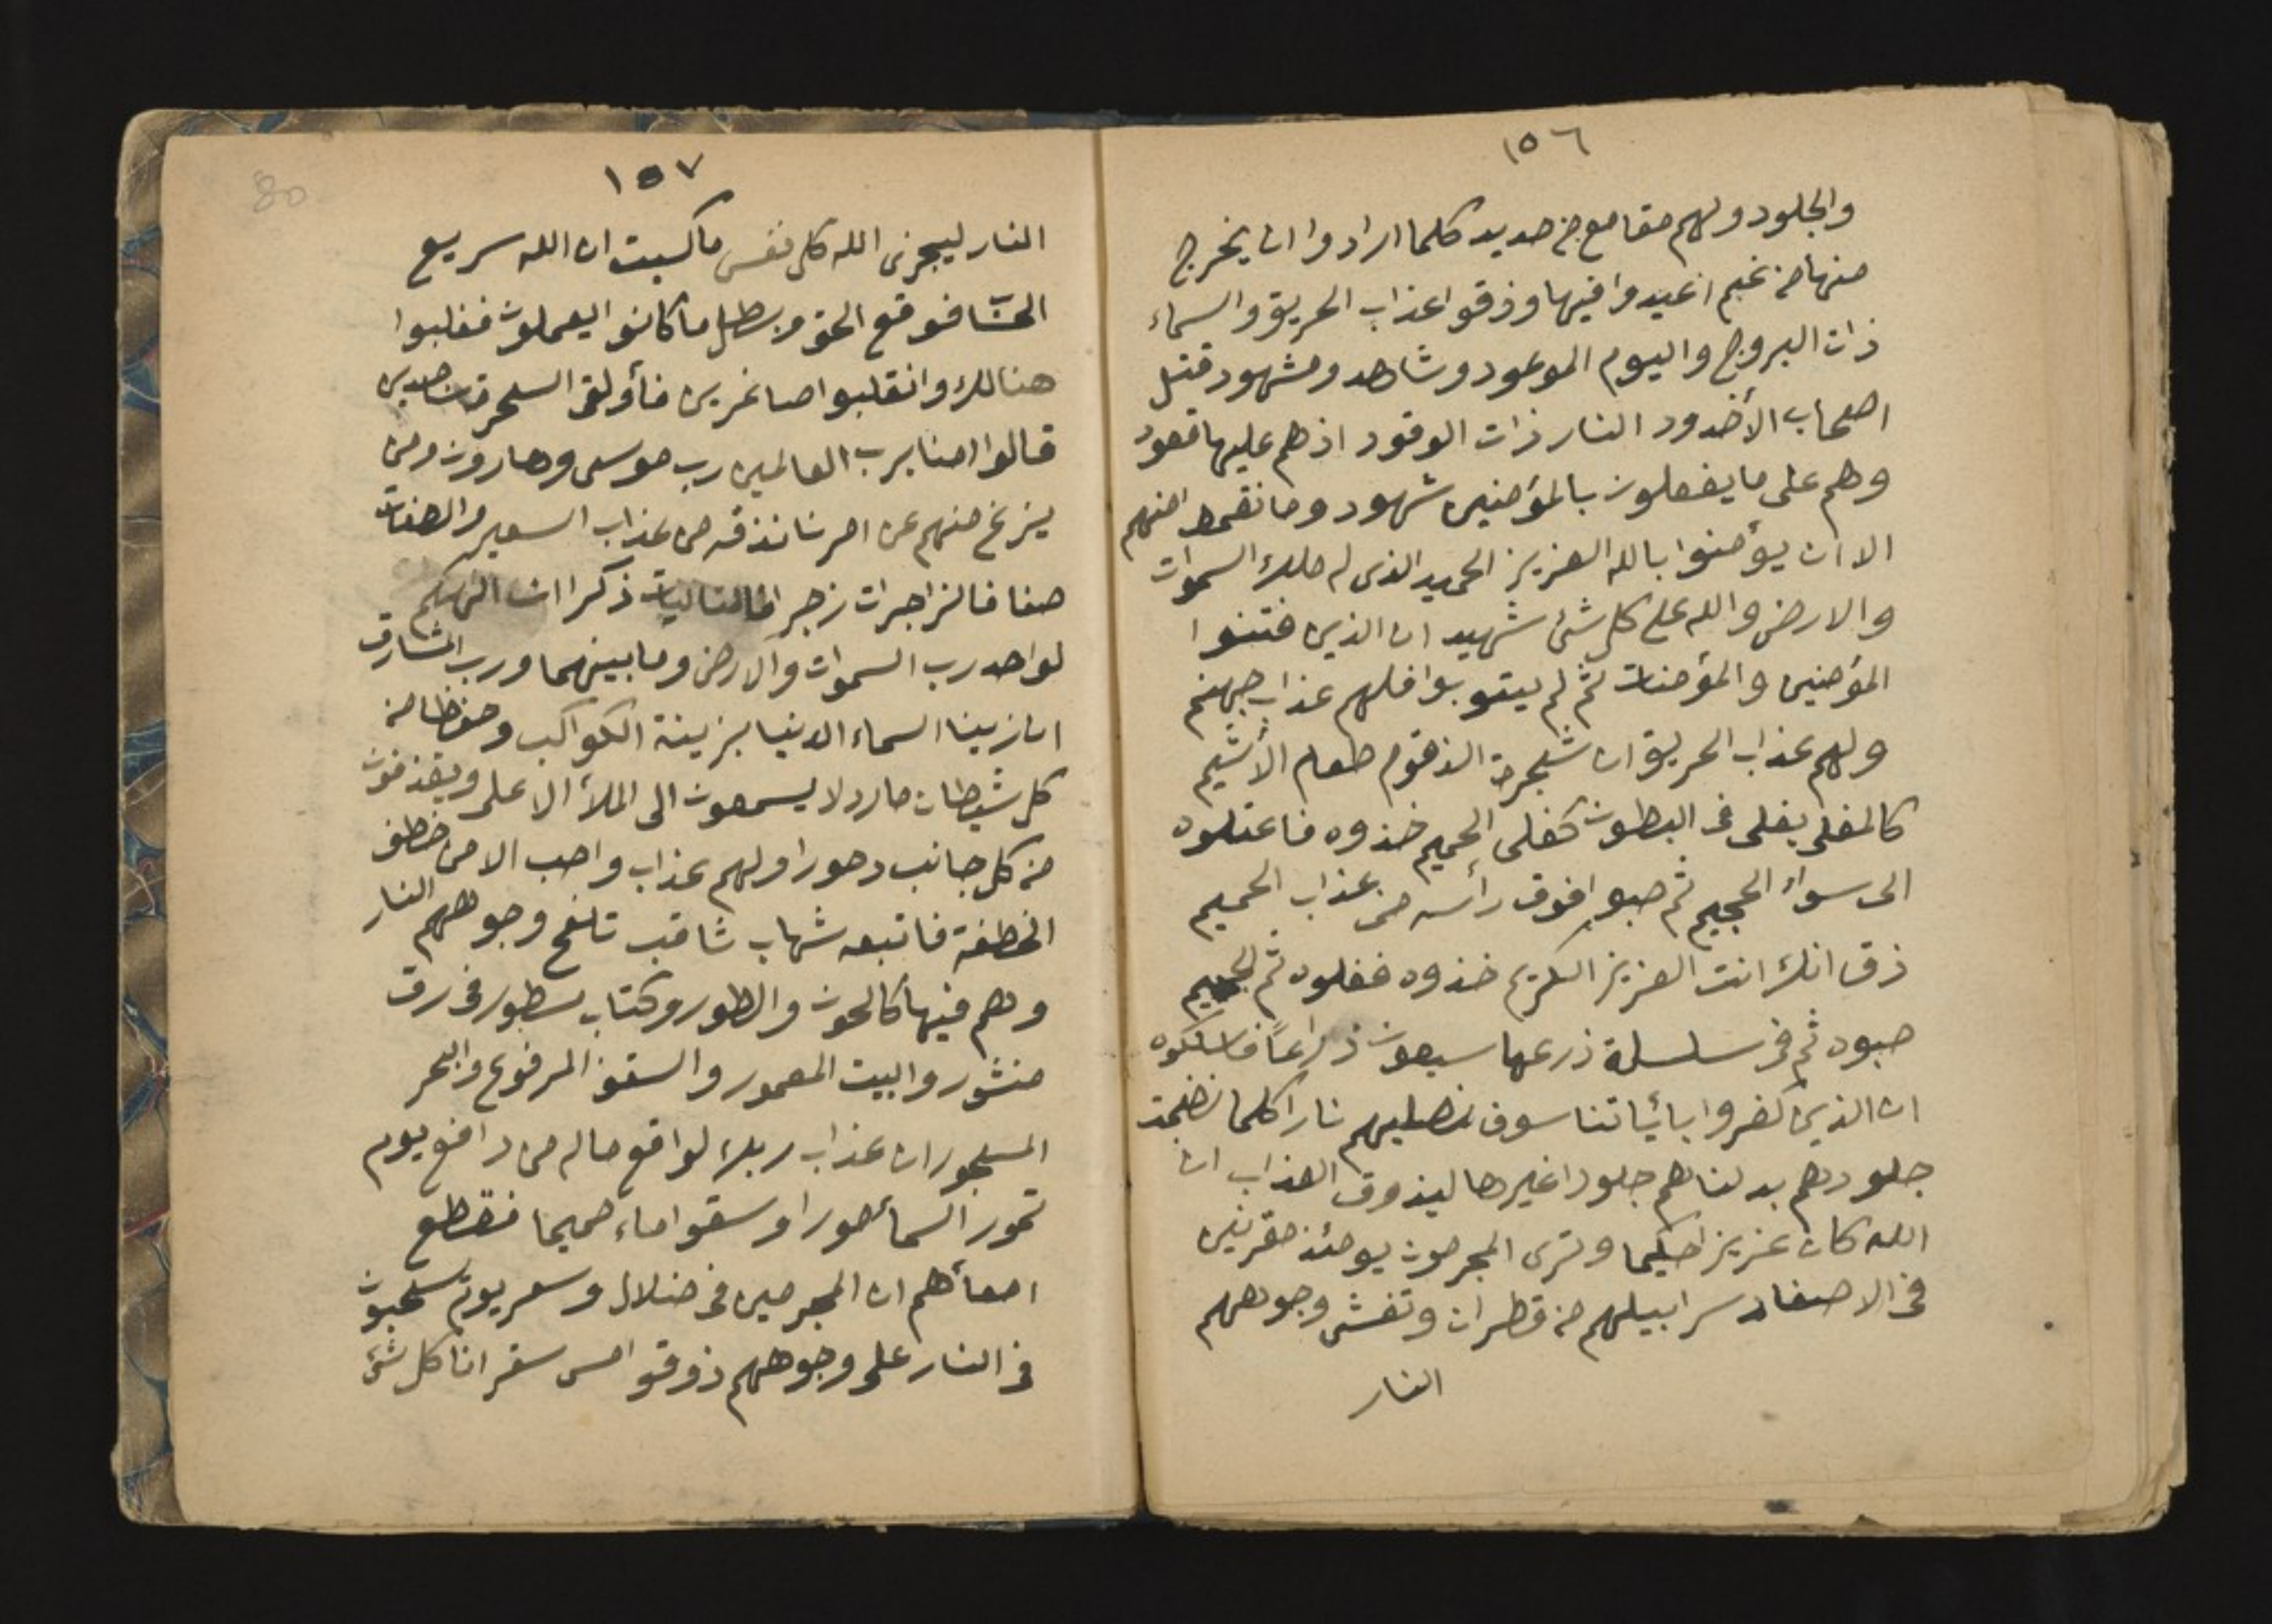 ١٥٦
والجلود ولهم مقامع من حديد كلما ارادوا ان يخرج
منها من غم اعيدوا فيها وذقوا عذاب الحريق والسماء
ذات البروج واليوم الموعود وشاهد ومشهود قتل
اصحاب الأخدود النار ذات الوقود اذ هم عليها قعود
وهم على ما يفعلون بالمؤمنين شهود وما نقموا منهم
الا ان يؤمنوا بالله العزيز الحميد الذى له ملك السموات
والارض والله على كل شئ شهيد ان الذين فتنوا
المؤمنين والمؤمنات ثم لم يتوبوا فلهم عذاب جهنم
ولهم عذاب الحريق ان شجرة الذقوم طعام الأثيم
كالمغلى يغلى فى البطون كغلى الحميم خذوه فاعتلوه
الى سواء الجحيم ثم صبوا فوق رأسه من عذاب الحميم
ذق انك انت العزيز الكريم خذوه فغلوه ثم الجحيم
صبوه ثم فى سلسلة ذرعها سبعون ذراعاً فاسلكوه
ان الذين كفروا بأياتنا سوف نصليهم نارا كلما نضجت
جلودهم بدلناهم جلودا غيرها ليذوق العذاب ان
الله كان عزيزا حكيما وترى المجرمون يومئذ مقرنين
فى الاصفاد سرابيلهم من قطران وتغشى وجوههم
النار
١٥٧
النار ليجزى الله كل نفس ما كسبت ان الله سريع
الحسا فوقع الحق وبطل ما كانوا يعملون فغلبوا
هنالك وانقلبوا صاغرين فأولقى السحرة ساجدين
قالوا امنا برب العالمين رب موسى وهارون ومن
يزغ منهم عن امرنا نذقه من عذاب السعير والصفات
صفا فالزاجرات زجرا فالتاليات ذكرا ان الهكم
لواحد رب السموات والارض وما بينهما ورب المشارق
انا زينا السماء الدنيا بزينة الكواكب وحفظا من
كل شيطان مارد لا يسمعون الى الملأ الاعلى ويقذفون
من كل جانب دحورا ولهم عذاب واصب الا من خطف
الخطفة فاتبعه شهاب ثاقب تلفح وجوههم النار
وهم فيها كالحون والطور وكتاب مسطور فى رق
منشور والبيت المعمور والسقف المرفوع والبحر
المسجور ان عذاب ربك لواقع ماله من دافع يوم
تمور السمأ مورا وسقوا ماء حميما فقطع
امعأهم ان المجرمين فى ضلال وسعر يوم يسحبون
فى النار على وجوههم ذوقوا مس سقر انا كل شئ
80